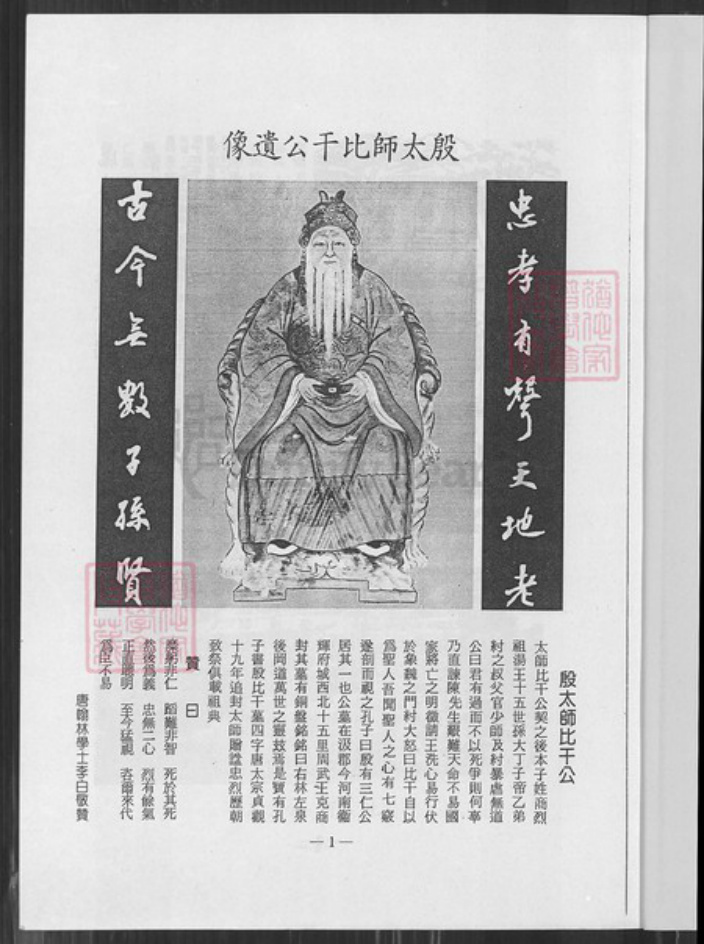 殷太師比干公遺像
忠孝有聲天地老
古今無數子孫賢
殷太師比干公
太師比干公契之後本子姓商烈
祖湯王十五世孫大丁子帝乙弟
村之叔父官少師及村暴虐無道
公曰君有過而不以死爭則何辜
乃直諫陳先生艱難天命不易國
家將亡之明徵請王洗心易行伏
於象魏之門村大怒曰比干自以
為聖人吾聞聖人之心有七竅
遂剖而視之孔子曰殷有三仁公
居其一也公墓在汲郡今河南衛
輝府城西北十五里周武王克商
封其墓有銅盤銘銘曰右林左泉
後岡道萬世之靈茲焉是寶有孔
子書殷比干墓四字唐太宗貞觀
十九年追封太師贈諡忠烈歷朝
致祭俱載祖典
贊曰
非仁 蹈難非智 死於其死
然後為義 忠無二心 烈有餘氣
正直聰明 至今猛視 咨爾來代
為臣不易
唐翰林學士李白敬贊
—1—